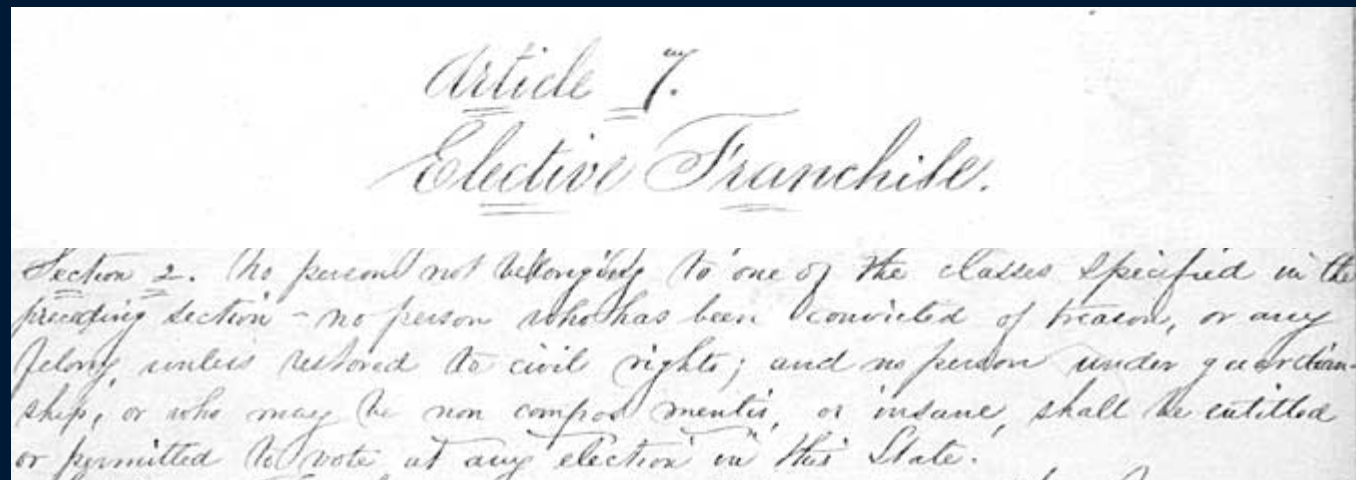 Article 7.
Elective Franchise.
Section 2. No person not belonging to one of the classes specified in the
preceding section - no person who has been convicted of treason, or any
felony unless restored to civil rights; and no person under guardian-
ship, or who may be non compos mentis, or insane, shall be entitled
or permitted to vote at any election in this State.